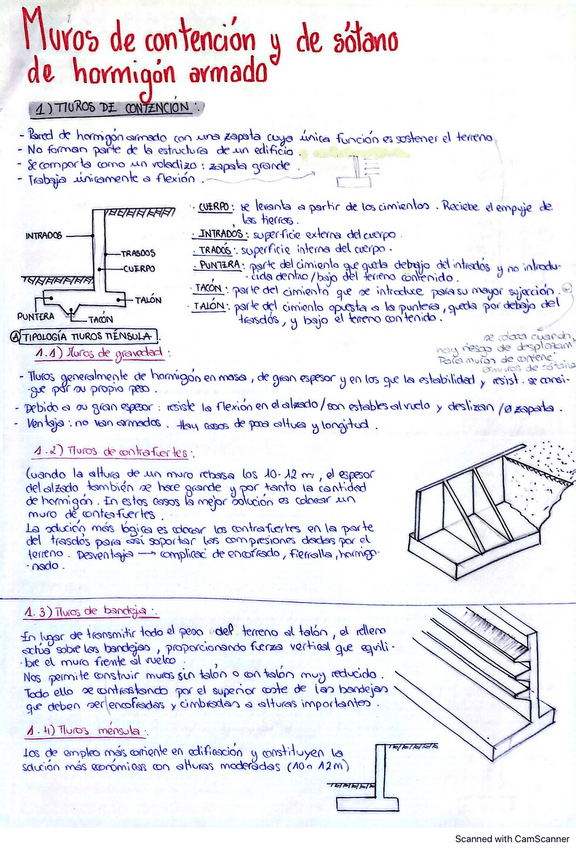 Muros de contención y de sótano
de hormigón armado
1) MUROS DE CONTENCIÓN:.
- Pared de hormigón armado con una zapata cuya única función es sostener el terreno
- No forman parte de la estructura de un edificio.
- Se comporta como un voladizo: zapata grande.
- Trabaja únicamente a flexión.
INTRADÓS
TRASDÓS
CUERPO
TALÓN
PUNTERA
TACÓN
· CUERPO: se levanta a partir de los cimientos. Recibe el empuje de
las tierras.
· INTRADÓS: superficie externa del cuerpo.
· TRADÓS: superficie interna del cuerpo.
· PUNTERA: parte del cimiento que queda debajo del intradós y no introdu-
· cida dentro/bajo del terreno contenido.
· TACÓN: parte del cimiento que se introduce para su mayor sujección.
· TALÓN: parte del cimiento opuesta a la puntera, queda por debajo del
trasdós, y bajo el terreno contenido.
se coloca cuando
hay riesgo de desplazam
Para muros de contene
A TIPOLOGÍA MUROS MÉNSULA.
1.1) Muros de gravedad:
- Muros generalmente de hormigón en masa, de gran espesor y en los que la estabilidad y resist. se consi-
gue por su propio peso.
- Debido a su gran espesor: resiste la flexión en el alzado/son estables al vuelo y deslizan /Ø zapata.
- Ventaja: no van armados. Hay casos de poca altura y longitud.
1.2) Muros de contrafuertes:.
Cuando la altura de un muro rebasa los 10-12 m, el espesor
del alzado también se hace grande y por tanto la cantidad
de hormigón. En estos casos la mejor solución es colocar un
muro de contrafuertes.
La solución más lógica es colocar los contrafuertes en la parte
del trasdós para así soportar las compresiones dadas por el
terreno. Desventaja → complicac de encofrado, fierralla, hormigo-
· nado.
1.3) Muros de bandeja:.
En lugar de transmitir todo el peso del terreno al talón, el relleno
actúa sobre las bandejas, proporcionando fuerza vertical que equili-
· bre el muro frente al vuelco.
Nos permite construir muros sin talón o con talón muy reducido.
Todo ello se contrastando por el superior coste de las bandejas
que deben ser encofradas y cimbradas a alturas importantes.
1.4) Muros ménsula:.
Los de empleo más corriente en edificación y constituyen la
solución más económica con alturas moderadas (10 a 12m)
Scanned with CamScanner